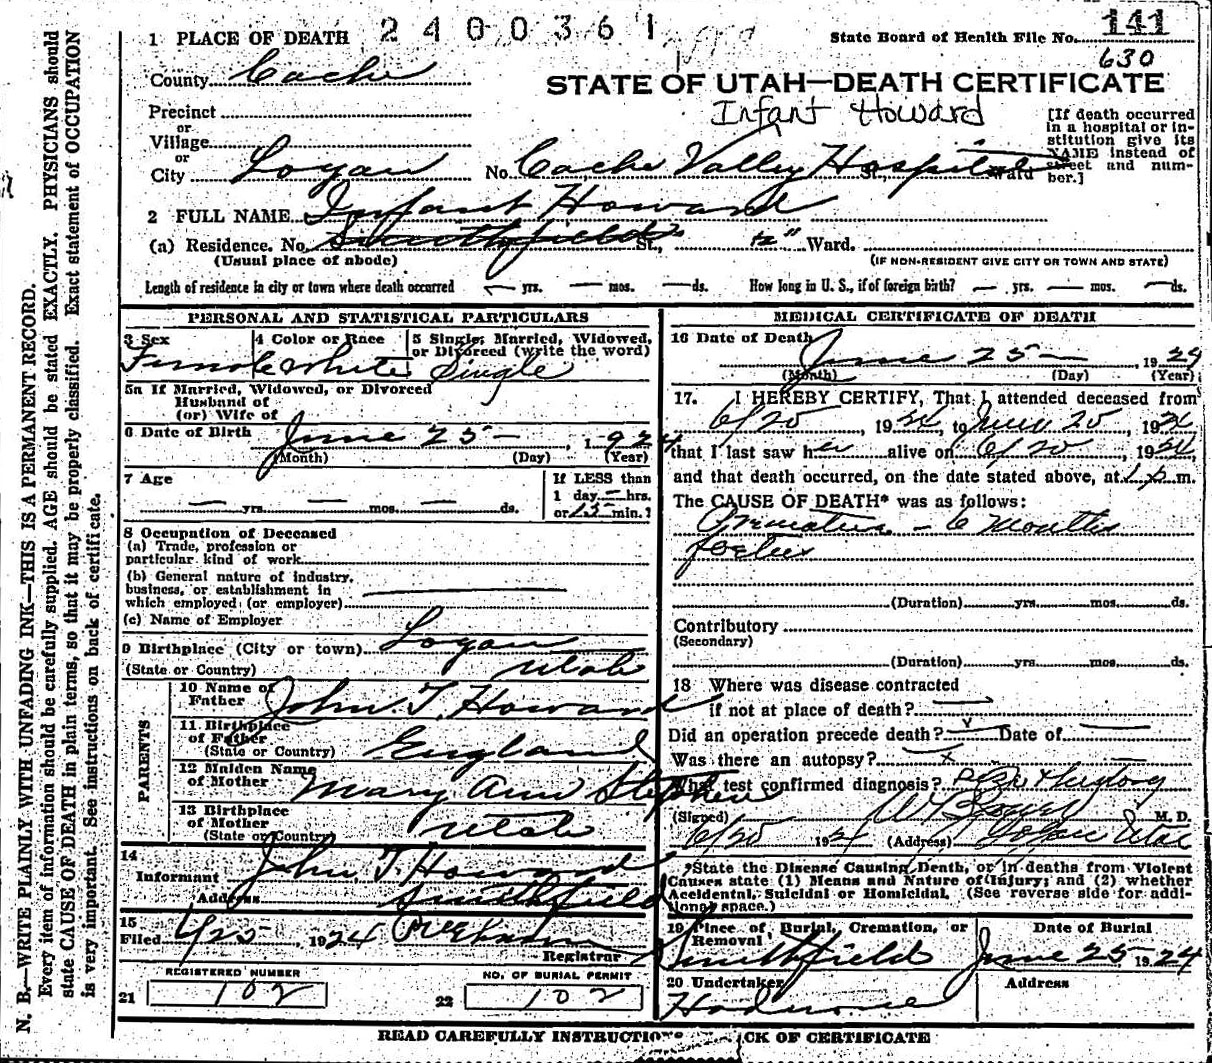 2400361
141
State Board of Health File No.
630
1 PLACE OF DEATH
County Cache
STATE OF UTAH—DEATH CERTIFICATE
Infant Howard
Precinct
or
Village
or
City Logan No. Cache Valley Hospital St., Ward
[If death occurred in a hospital or institution give its NAME instead of street and number.]
2 FULL NAME Infant Howard
(a) Residence. No. Smithfield St., Ward.
(Usual place of abode)
(IF NON-RESIDENT GIVE CITY OR TOWN AND STATE)
Length of residence in city or town where death occurred — yrs. — mos. — ds. How long in U. S., if of foreign birth? — yrs. — mos. — ds.
PERSONAL AND STATISTICAL PARTICULARS
3 Sex 4 Color or Race 5 Single, Married, Widowed, or Divorced (write the word)
Female White Single
5a If Married, Widowed, or Divorced
Husband of
(or) Wife of
6 Date of Birth June 25 — , 1924
(Month) (Day) (Year)
7 Age
— yrs. — mos. — ds.
If LESS than
1 day — hrs.
or 15 min.?
8 Occupation of Deceased
(a) Trade, profession or
particular kind of work
(b) General nature of industry,
business, or establishment in
which employed (or employer)
(c) Name of Employer
9 Birthplace (City or town) Logan
(State or Country) Utah
PARENTS
10 Name of Father John T. Howard
11 Birthplace of Father
(State or Country) England
12 Maiden Name of Mother Mary Ann
13 Birthplace of Mother
(State or Country) Utah
14
Informant John T. Howard
Address Smithfield
15
Filed 25, 1924
Registrar
REGISTERED NUMBER
21 102
NO. OF BURIAL PERMIT
22 102
MEDICAL CERTIFICATE OF DEATH
16 Date of Death June 25 — , 1924
(Month) (Day) (Year)
17. I HEREBY CERTIFY, That I attended deceased from
6/25, 1924, to June 25, 1924
that I last saw her alive on 6/25, 1924,
and that death occurred, on the date stated above, at 1 p. m.
The CAUSE OF DEATH* was as follows:
Premature — 6 months
foetus
(Duration) yrs. mos. ds.
Contributory
(Secondary)
(Duration) yrs. mos. ds.
18 Where was disease contracted
if not at place of death?
Did an operation precede death? Date of
Was there an autopsy? x
What test confirmed diagnosis?
(Signed) M. D.
6/25 1924 (Address) Logan Utah
*State the Disease Causing Death, or in deaths from Violent
Causes state (1) Means and Nature of Injury; and (2) whether
Accidental, Suicidal or Homicidal. (See reverse side for additional space.)
19 Place of Burial, Cremation, or Removal Date of Burial
Smithfield June 25 1924
20 Undertaker Address
READ CAREFULLY INSTRUCTIONS CK OF CERTIFICATE
N. B.—WRITE PLAINLY WITH UNFADING INK—THIS IS A PERMANENT RECORD.
Every item of information should be carefully supplied. AGE should be stated EXACTLY. PHYSICIANS should
state CAUSE OF DEATH in plain terms, so that it may be properly classified. Exact statement of OCCUPATION
is very important. See instructions on back of certificate.